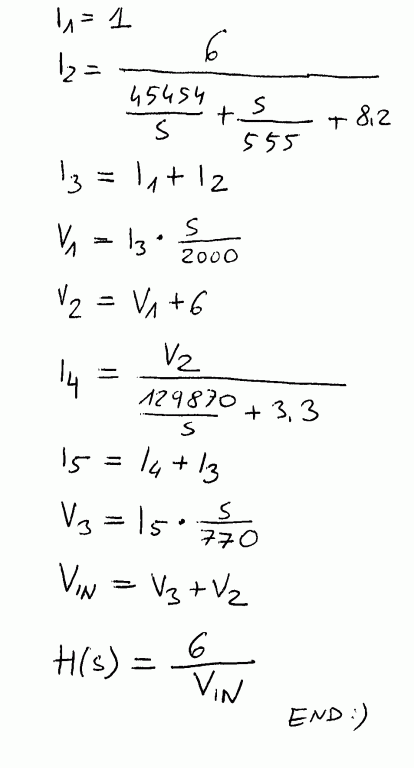 I1 = 1
I2 = 6 / (45454/S + S/555 + 8.2)
I3 = I1 + I2
V1 = I3 · S/2000
V2 = V1 + 6
I4 = V2 / (129870/S + 3.3)
I5 = I4 + I3
V3 = I5 · S/770
VIN = V3 + V2
H(s) = 6 / VIN
END :)